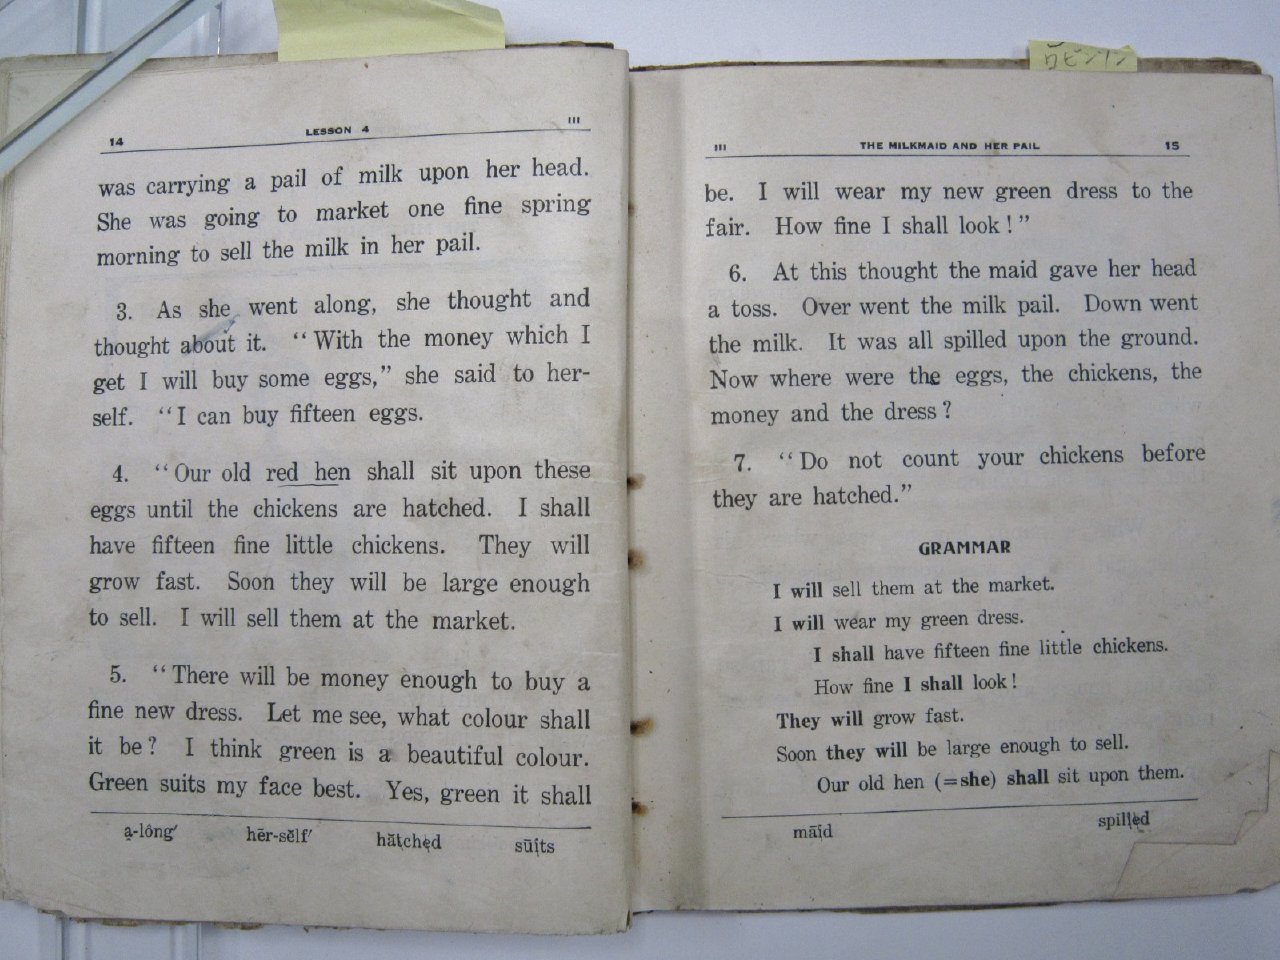 14 LESSON 4 III
was carrying a pail of milk upon her head.
She was going to market one fine spring
morning to sell the milk in her pail.
3. As she went along, she thought and
thought about it. “With the money which I
get I will buy some eggs,” she said to her-
self. “I can buy fifteen eggs.
4. “Our old red hen shall sit upon these
eggs until the chickens are hatched. I shall
have fifteen fine little chickens. They will
grow fast. Soon they will be large enough
to sell. I will sell them at the market.
5. “There will be money enough to buy a
fine new dress. Let me see, what colour shall
it be? I think green is a beautiful colour.
Green suits my face best. Yes, green it shall
ạ-lông′ hẽr-sĕlf′ hătchėd sūits
ロビンソン
III THE MILKMAID AND HER PAIL 15
be. I will wear my new green dress to the
fair. How fine I shall look!”
6. At this thought the maid gave her head
a toss. Over went the milk pail. Down went
the milk. It was all spilled upon the ground.
Now where were the eggs, the chickens, the
money and the dress?
7. “Do not count your chickens before
they are hatched.”
GRAMMAR
I will sell them at the market.
I will wear my green dress.
I shall have fifteen fine little chickens.
How fine I shall look!
They will grow fast.
Soon they will be large enough to sell.
Our old hen (=she) shall sit upon them.
māid spillėd